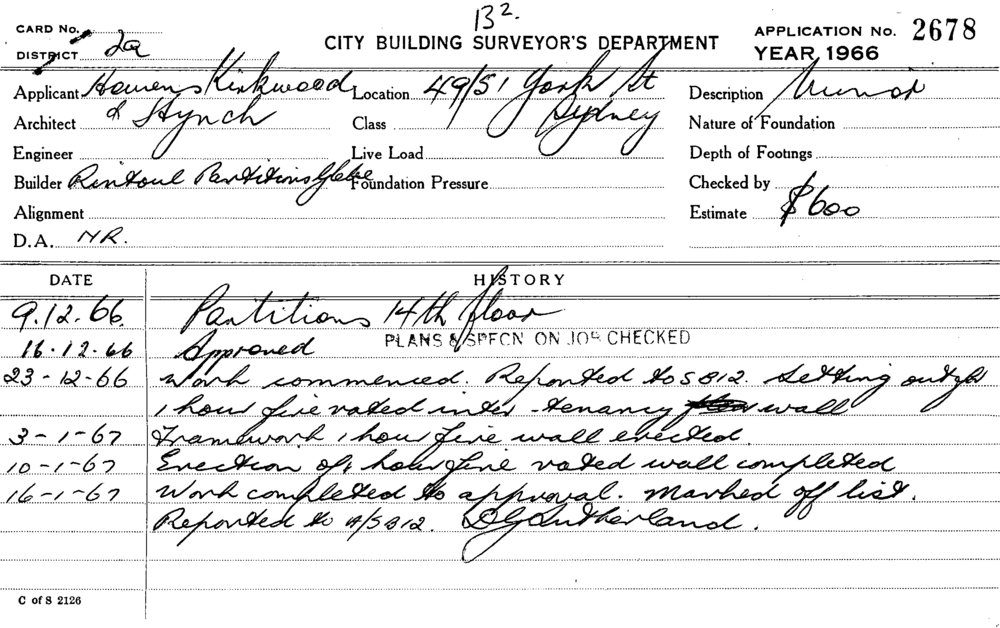 B2.
CARD No.
CITY BUILDING SURVEYOR'S DEPARTMENT
APPLICATION No. 2678
DISTRICT 2a
YEAR 1966
Applicant Howens Kirkwood Location 49/51 York St Description Minor
Architect & Hynch Class Sydney Nature of Foundation
Engineer Live Load Depth of Footings
Builder Rintoul Partitions Glebe Foundation Pressure Checked by
Alignment Estimate $600
D.A. NR.
DATE HISTORY
9.12.66. Partitions 14th floor
PLANS & SPECN ON JOB CHECKED
16.12.66 Approved
23-12-66 Work commenced. Reported to SB12. Setting out of
1 hour fire rated inter-tenancy wall
3-1-67 Framework 1 hour fire wall erected.
10-1-67 Erection of 1 hour fire rated wall completed
16-1-67 Work completed to approval. Marked off list.
Reported to A/SB12. DGSutherland.
C of S 2126